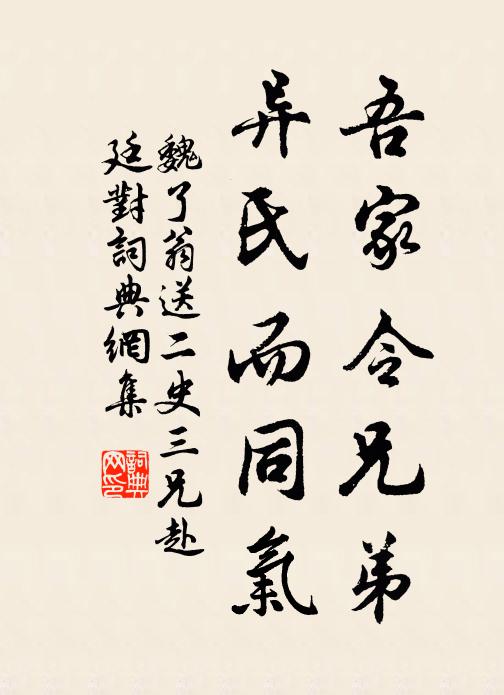 吾家令兄弟
异氏而同氣
魏了翁送二史三兄赴
廷對詞典網集
詞典網印